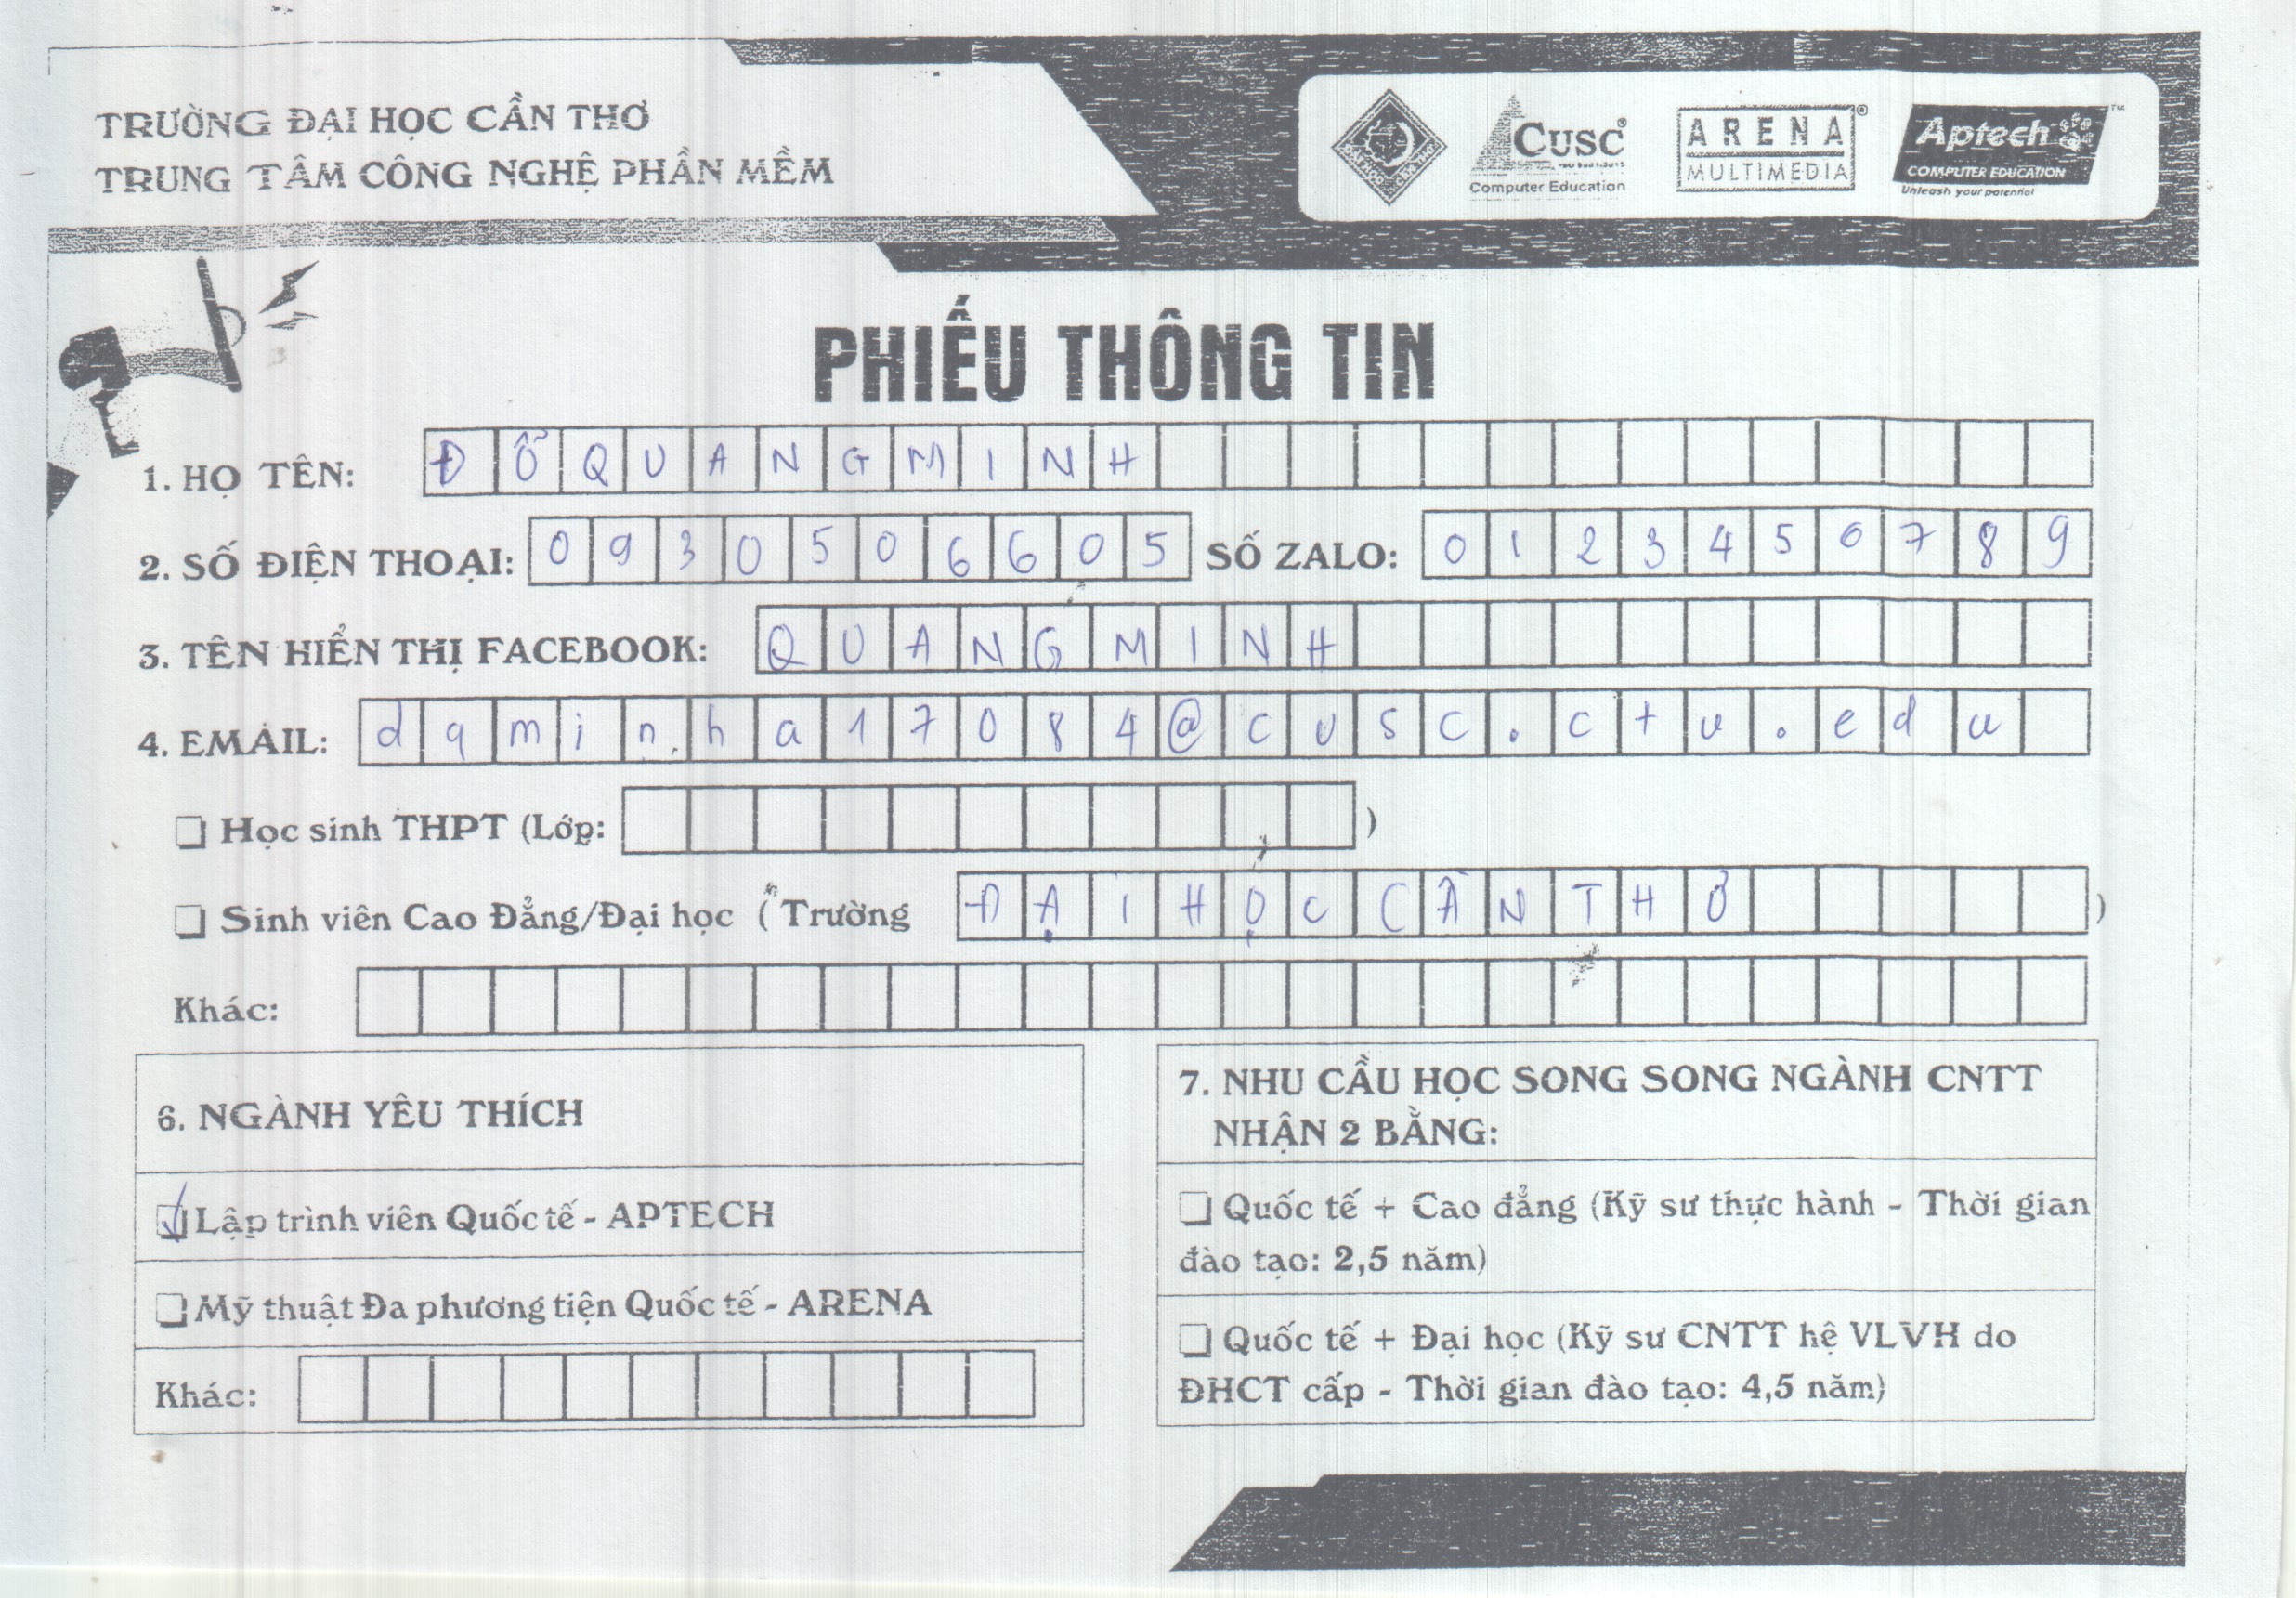 TRƯỜNG ĐẠI HỌC CẦN THƠ
TRUNG TÂM CÔNG NGHỆ PHẦN MỀM
CUSC®
Computer Education
ARENA®
MULTIMEDIA
Aptech™
COMPUTER EDUCATION
Unleash your potential
PHIẾU THÔNG TIN
1. HỌ TÊN: ĐỖ QUANG MINH
2. SỐ ĐIỆN THOẠI: 0930506605 SỐ ZALO: 0123456789
3. TÊN HIỂN THỊ FACEBOOK: QUANG MINH
4. EMAIL: dqminha17084@cusc.ctu.edu
❏ Học sinh THPT (Lớp: )
❏ Sinh viên Cao Đẳng/Đại học (Trường ĐẠI HỌC CẦN THƠ )
Khác:
6. NGÀNH YÊU THÍCH
☑ Lập trình viên Quốc tế - APTECH
❏ Mỹ thuật Đa phương tiện Quốc tế - ARENA
Khác:
7. NHU CẦU HỌC SONG SONG NGÀNH CNTT
NHẬN 2 BẰNG:
❏ Quốc tế + Cao đẳng (Kỹ sư thực hành - Thời gian
đào tạo: 2,5 năm)
❏ Quốc tế + Đại học (Kỹ sư CNTT hệ VLVH do
ĐHCT cấp - Thời gian đào tạo: 4,5 năm)